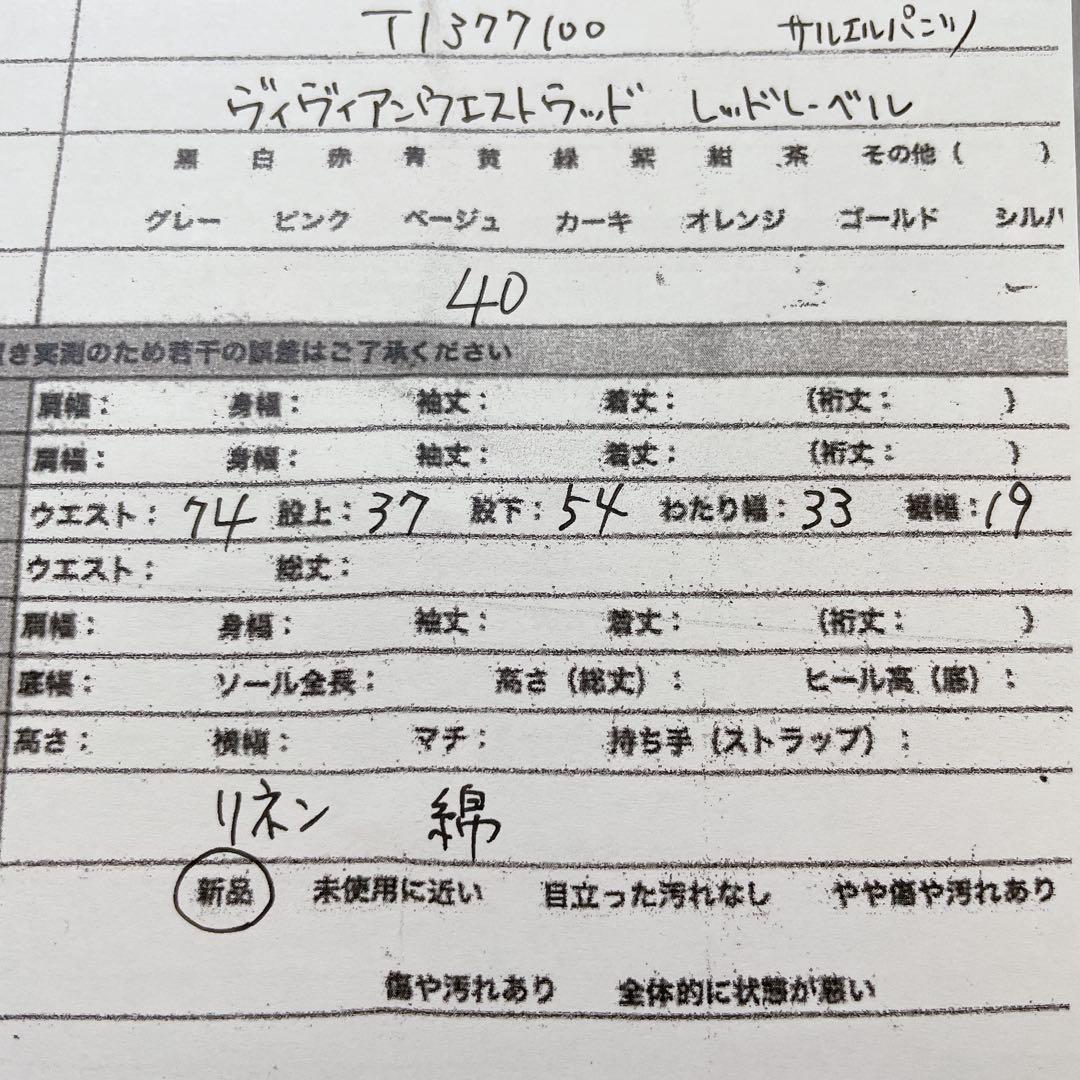 T1377100 サルエルパンツ
ヴィヴィアンウエストウッド レッドレーベル
黒 白 赤 青 黄 緑 紫 紺 茶 その他( )
グレー ピンク ベージュ カーキ オレンジ ゴールド シルバ
40
置き実測のため若干の誤差はご了承ください
肩幅: 身幅: 袖丈: 着丈: (裄丈: )
肩幅: 身幅: 袖丈: 着丈: (裄丈: )
ウエスト: 74 股上: 37 股下: 54 わたり幅: 33 裾幅: 19
ウエスト: 総丈:
肩幅: 身幅: 袖丈: 着丈: (裄丈: )
底幅: ソール全長: 高さ(総丈): ヒール高(底):
高さ: 横幅: マチ: 持ち手(ストラップ):
リネン 綿
新品 未使用に近い 目立った汚れなし やや傷や汚れあり
傷や汚れあり 全体的に状態が悪い